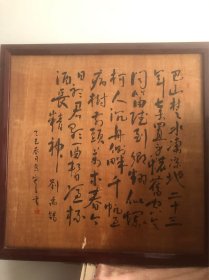 巴山楚水凄涼地二十三
年棄置身懷舊空吟
聞笛賦到鄉翻似爛
柯人沉舟側畔千帆過
病樹前頭萬木春今
日聽君歌一曲暫憑杯
酒長精神 劉禹錫